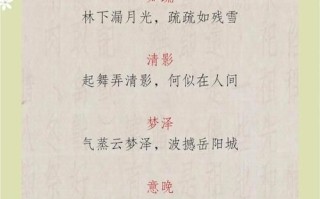 林下漏月光，疏疏如残雪
清影
起舞弄清影，何似在人间
梦泽
气蒸云梦泽，波撼岳阳城
意晚